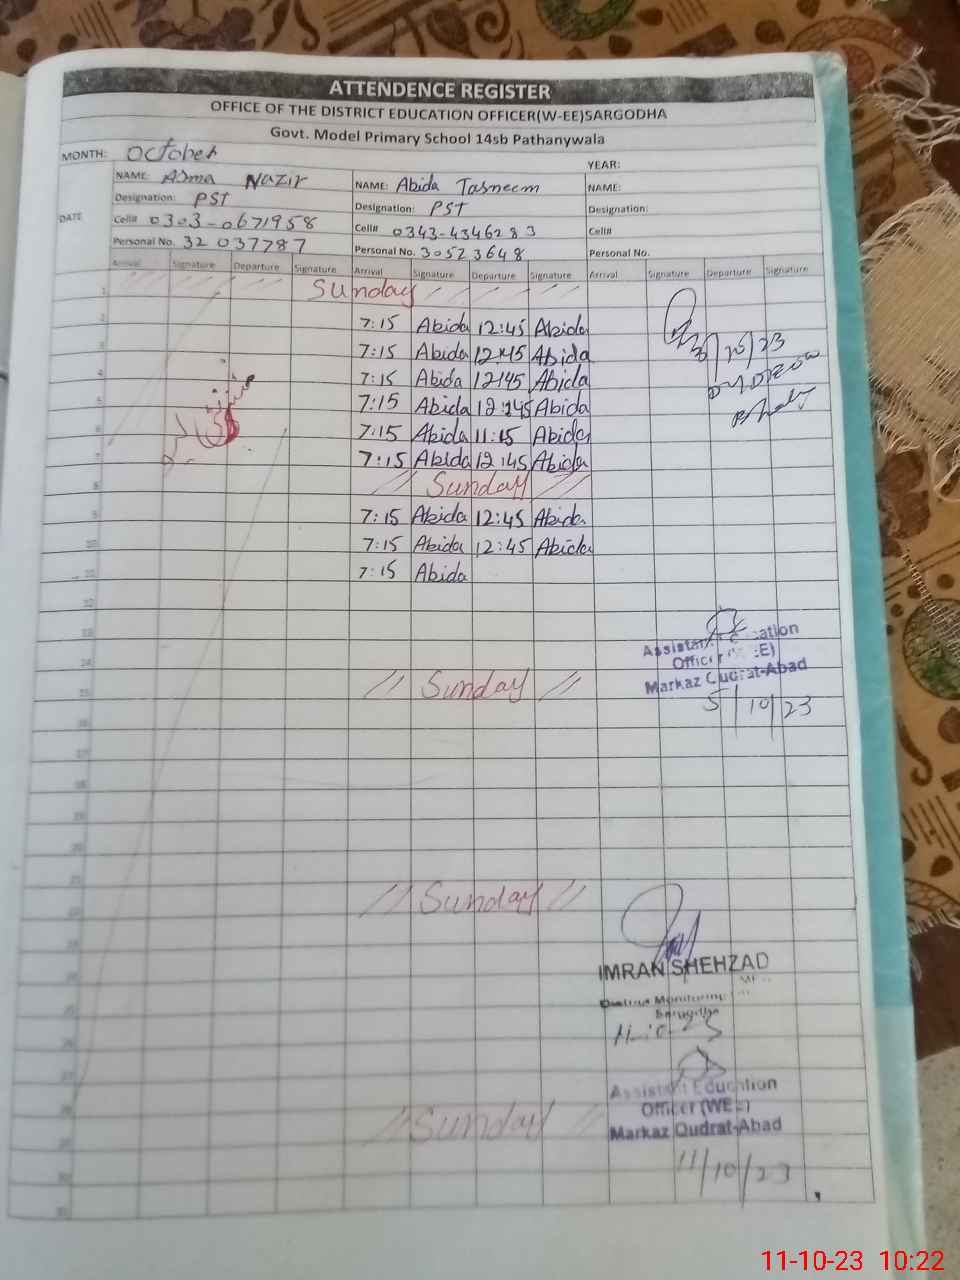 ATTENDENCE REGISTER
OFFICE OF THE DISTRICT EDUCATION OFFICER(W-EE)SARGODHA
Govt. Model Primary School 14sb Pathanywala
MONTH: October YEAR:
NAME: Asma Nazir NAME: Abida Tasneem NAME:
Designation: PST Designation: PST Designation:
DATE Cell# 0303-0671958 Cell# 0343-4346283 Cell#
Personal No. 32037787 Personal No. 30523648 Personal No.
Arrival Signature Departure Signature Arrival Signature Departure Signature Arrival Signature Departure Signature
1 Sunday
2 7:15 Abida 12:45 Abida
3 7:15 Abida 12:45 Abida 3/10/23
4 7:15 Abida 12:45 Abida
5 7:15 Abida 12:45 Abida
6 7:15 Abida 11:15 Abida
7 7:15 Abida 12:45 Abida
8 Sunday
9 7:15 Abida 12:45 Abida
10 7:15 Abida 12:45 Abida
11 7:15 Abida
12
13 Assistant Education
14 Officer
15 Sunday Markaz Qudrat-Abad
16 5/10/23
17
18
19
20
21
22 Sunday
23
24 IMRAN SHEHZAD
25 District Monitoring
26 11-10-23
27
28 Assistant Education
Officer (WEE)
29 Sunday Markaz Qudrat-Abad
30 11/10/23
31
11-10-23 10:22